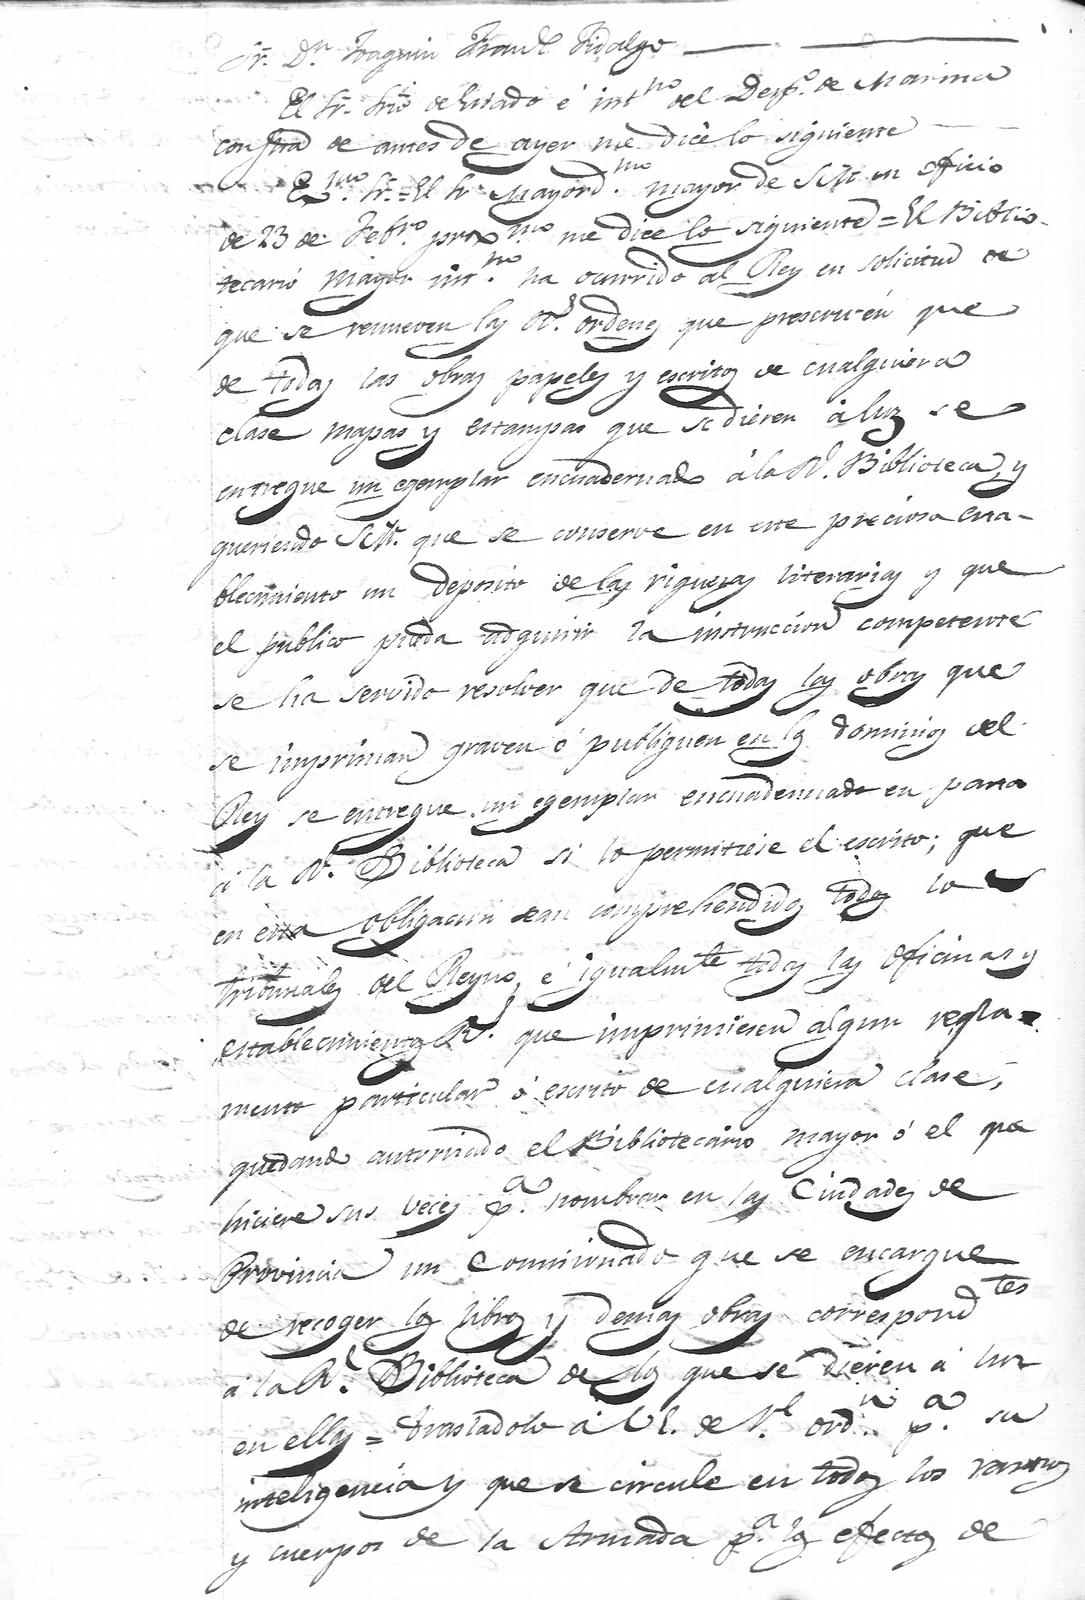 Sr. Dn. Joaquin Franco. Fidalgo
El Sr. Srio de Estado é intno del Despo. de Marina
con fha de antes de ayer me dice lo siguiente
Exmo. Sr. = El Sr Mayordmo. mayor de S.M. en oficio
de 23 de Febro proxmo me dice lo siguiente = El Biblio-
tecario mayor intno. ha ocurrido al Rey en solicitud de
que se renueven las Rs. ordenes que prescriven que
de todas las obras papeles y escritos de cualquiera
clase mapas y estampas que se dieren á luz se
entregue un egemplar encuadernado á la Rl. Biblioteca, y
queriendo S.M. que se conserve en este precioso esta-
blecimiento un deposito de las riquezas literarias y que
el publico pueda adquirir la instruccion competente
se ha servido resolver que de todas las obras que
se impriman graven ó publiquen en los dominios del
Rey se entregue un egemplar encuadernado en pasta
á la Rl. Biblioteca si lo permitiese el escrito; que
en esta obligacion sean comprehendidos todos los
tribunales del Reyno, é igualmte todas las oficinas y
establecimientos Rs. que imprimiesen algun regla-
mento particular ó escrito de cualquiera clase;
quedando autorizado el Bibliotecario mayor ó el que
hiciere sus veces pa. nombrar en las Ciudades de
Provincia un Comisionado que se encargue
de recoger los libros y demas obras correspondtes
á la Rl. Biblioteca de los que se dieren á luz
en ellas = Trasladolo á V.E. de Rl. ordn. pa. su
inteligencia y que se circule en todos los ramos
y cuerpos de la Armada pa. los efectos de